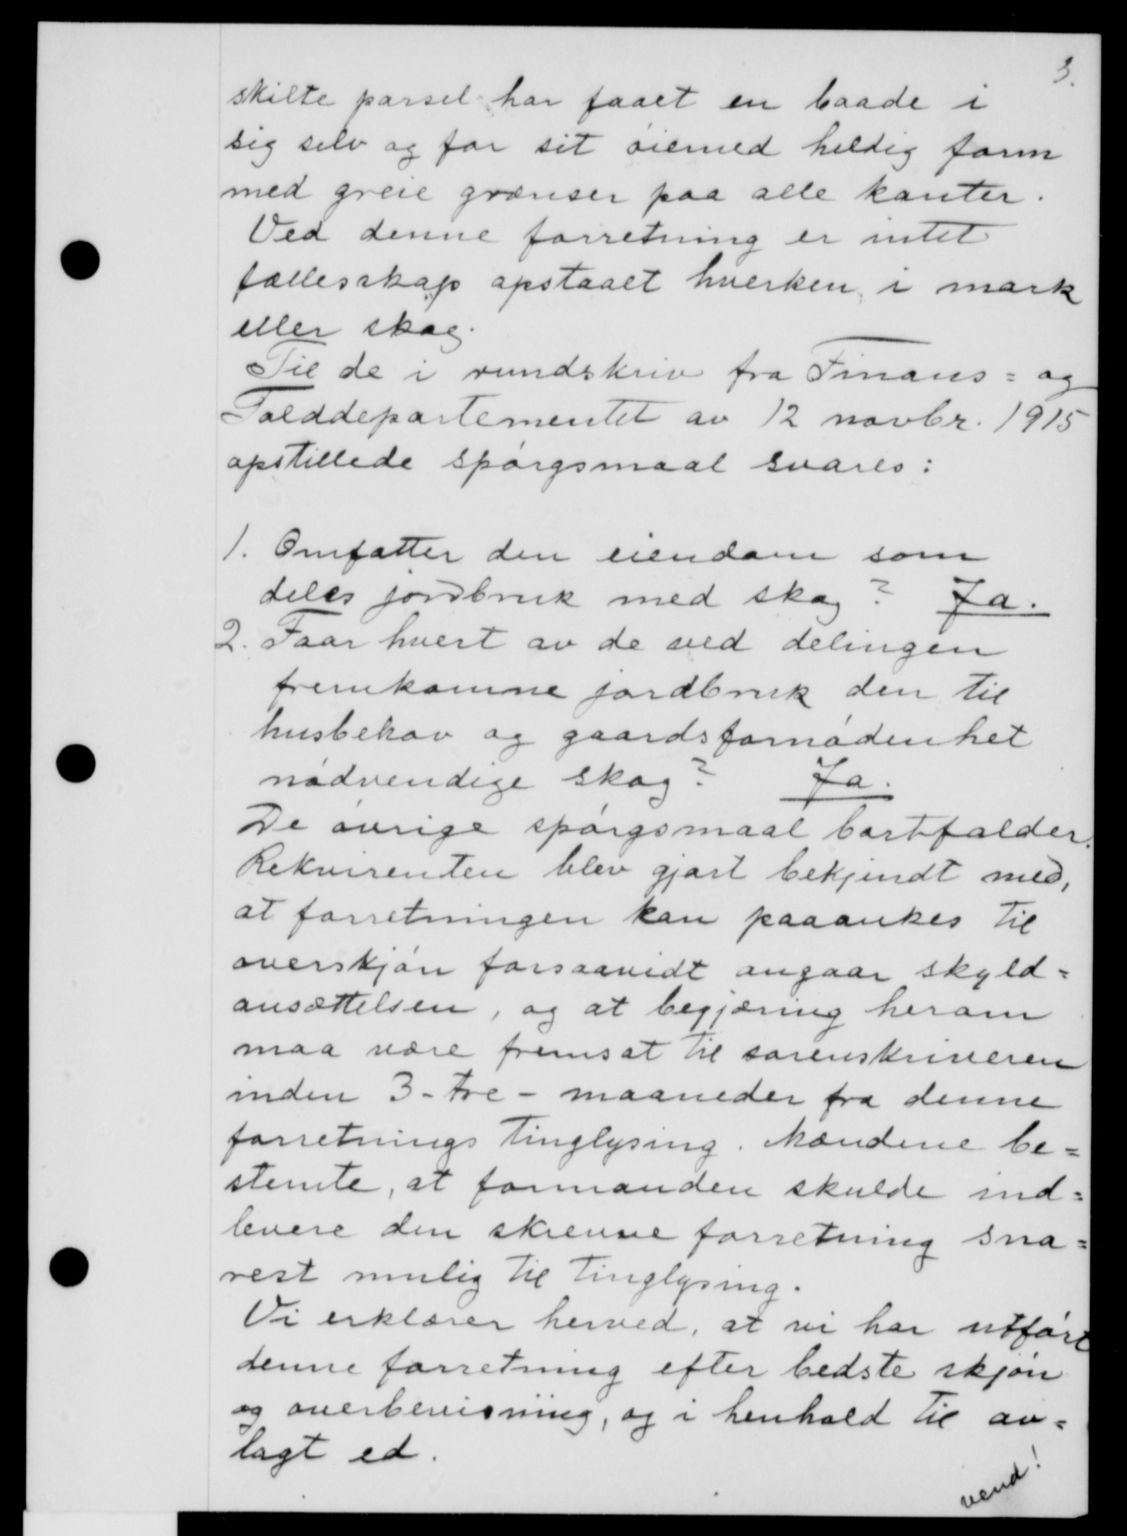 3.
skilte parsel har faaet en baade i
sig selv og for sit øiemed heldig form
med greie grænser paa alle kanter.
Ved denne forretning er intet
fællesskap opstaaet hverken i mark
eller skog.
Til de i rundskriv fra Finans= og
Tolddepartementet av 12 novbr. 1915
opstillede spørgsmaal svares:
1. Omfatter den eiendom som
deles jordbruk med skog? Ja.
2. Faar hvert av de ved delingen
fremkomne jordbruk den til
husbehov og gaardsfornødenhet
nødvendige skog? Ja.
De øvrige spørgsmaal bortfalder.
Rekvirenten blev gjort bekjendt med,
at forretningen kan paaankes til
overskjøn forsaavidt angaar skyld=
ansættelsen, og at begjæring herom
maa være fremsat til sorenskriveren
inden 3-tre- maaneder fra denne
forretnings tinglysing. Mændene be=
stemte, at formanden skulde ind=
levere den skrevne forretning sna=
rest mulig til tinglysing.
Vi erklærer herved, at vi har utført
denne forretning efter bedste skjøn
og overbevisning, og i henhold til av=
lagt ed.
vend!